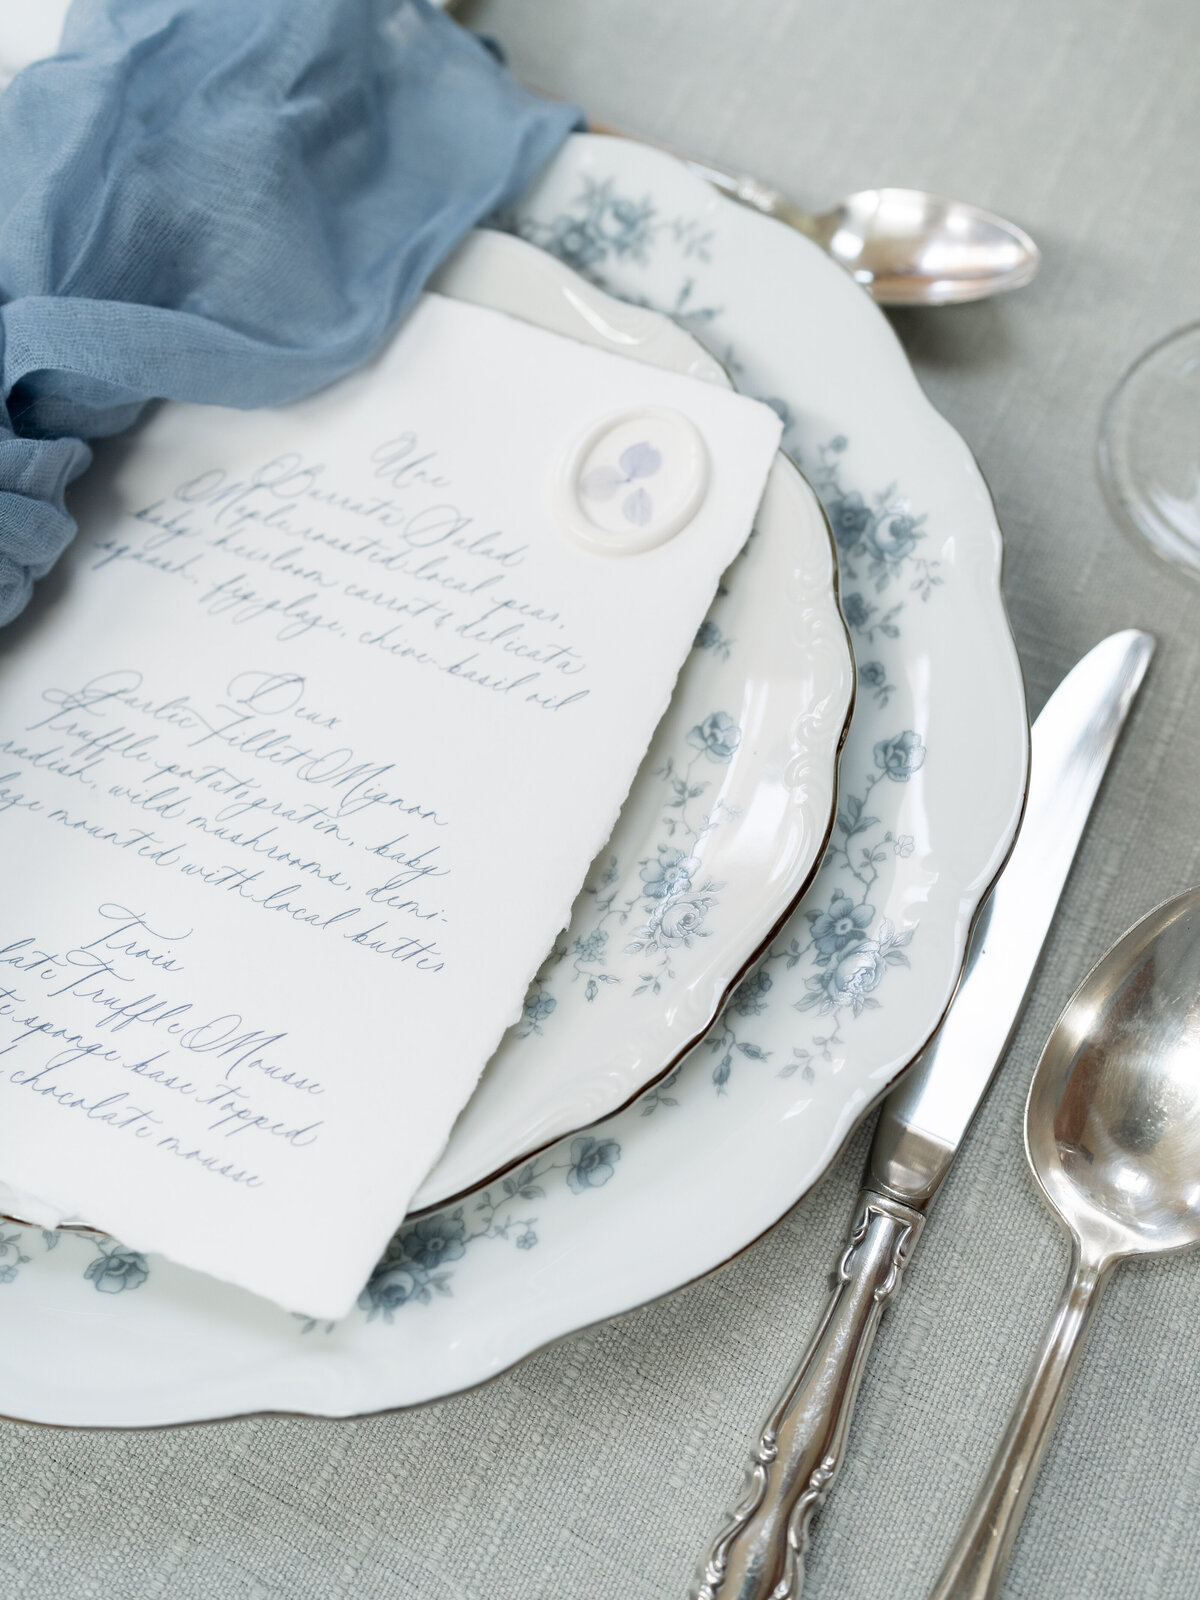 Une
Burrata Salad
Maple roasted local pear,
baby heirloom carrots delicata
squash, fig glaze, chive-basil oil
Deux
Garlic Fillet Mignon
Truffle potato gratin, baby
radish, wild mushrooms, demi-
mounted with local butter
Trois
Truffle Mousse
sponge base topped
chocolate mousse